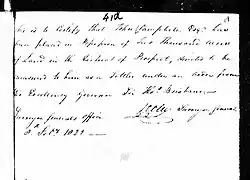 This is to Certify that John Campbell Esq. has
been placed in possession of Two Thousand acres
of Land in the District of Prospect, decided to be
measured to him as a Settler under an order from
His Excellency Governor Sir Thos. Brisbane
Surveyor General
Surveyor Generals Office
Feby. 1821